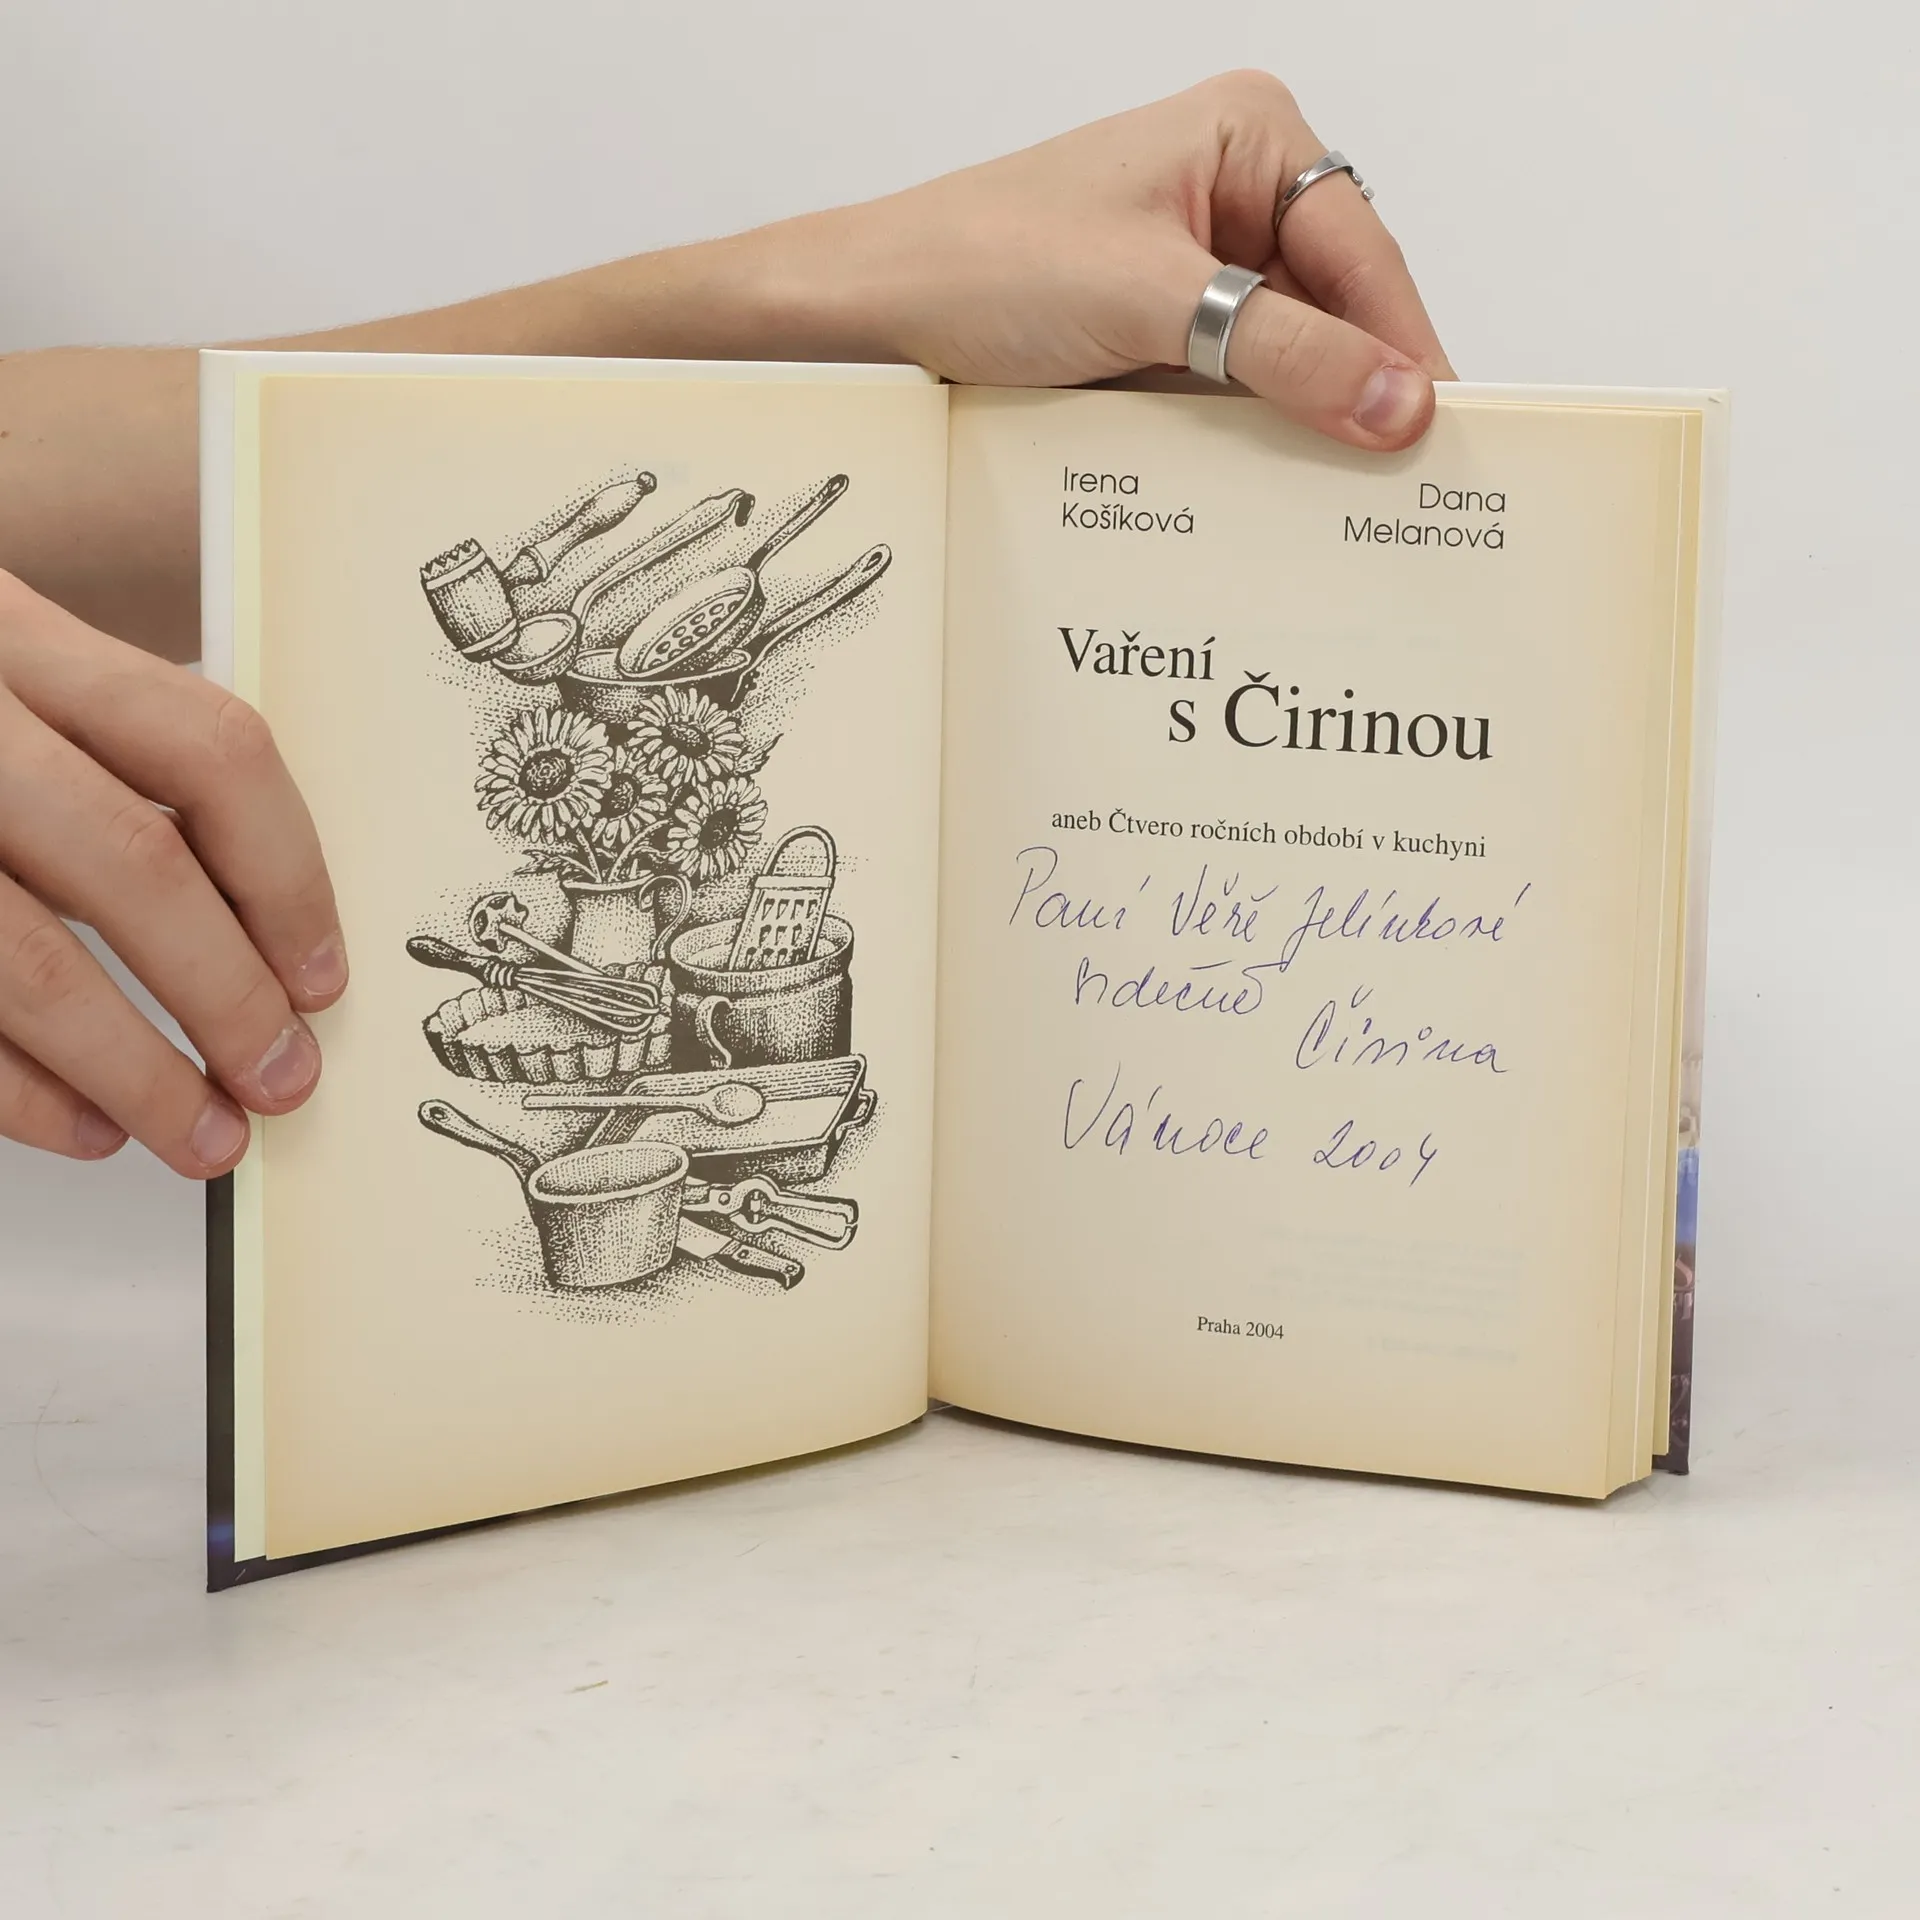 Irena
Košíková
Dana
Melanová
Vaření
s Čirinou
aneb Čtvero ročních období v kuchyni
Paní Věře Jelínkové
srdečně
Čirina
Vánoce 2004
Praha 2004